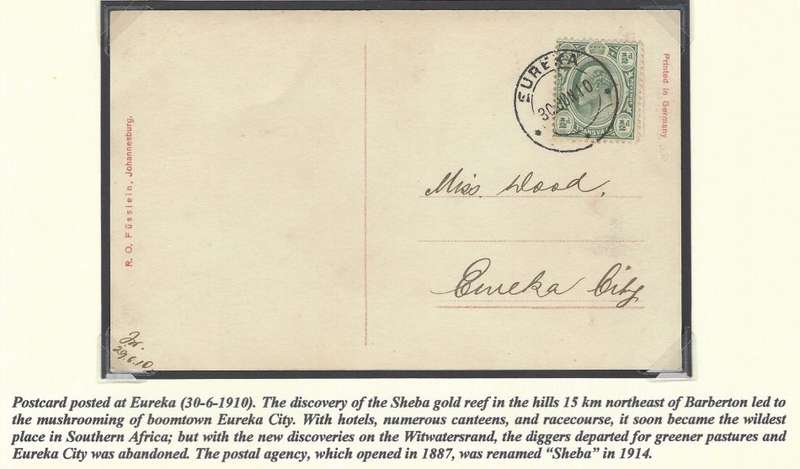 R. O. Füsslein, Johannesburg.
EUREKA
30 JUN 10
TRANSVAAL
Printed in Germany
Miss. Wood,
Eureka City
29.6.10.
Postcard posted at Eureka (30-6-1910). The discovery of the Sheba gold reef in the hills 15 km northeast of Barberton led to
the mushrooming of boomtown Eureka City. With hotels, numerous canteens, and racecourse, it soon became the wildest
place in Southern Africa; but with the new discoveries on the Witwatersrand, the diggers departed for greener pastures and
Eureka City was abandoned. The postal agency, which opened in 1887, was renamed “Sheba” in 1914.